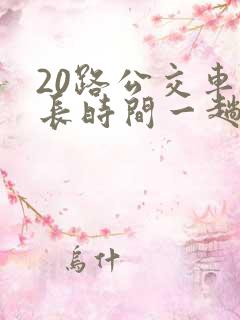 20路公交車
長時間一趟
烏什